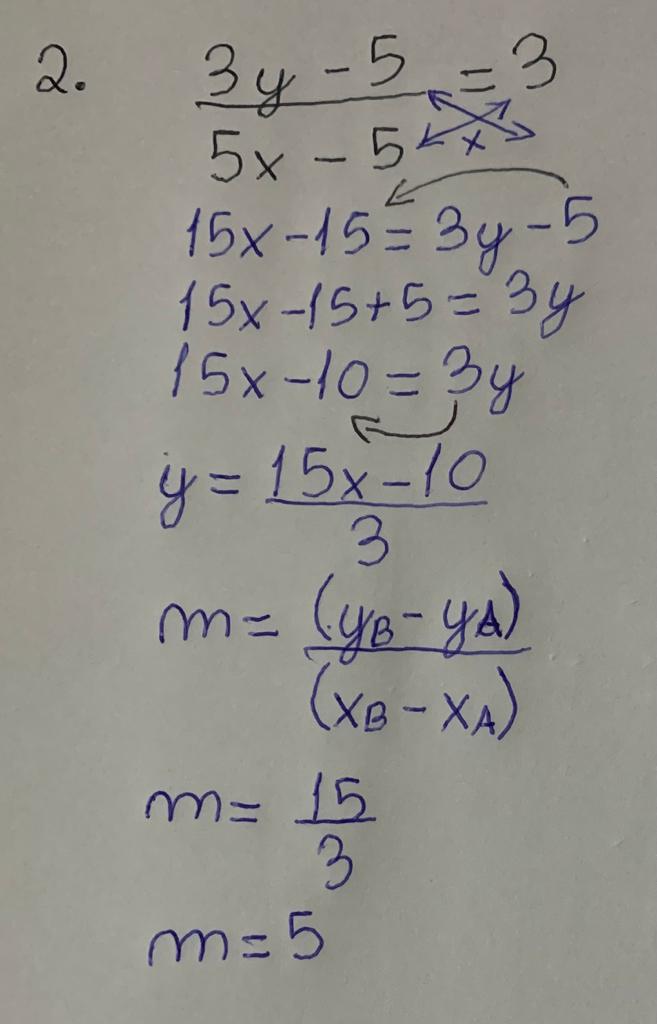 2. (3y - 5)/(5x - 5) = 3
x
15x - 15 = 3y - 5
15x - 15 + 5 = 3y
15x - 10 = 3y
y = (15x - 10)/3
m = (yB - yA)/(xB - xA)
m = 15/3
m = 5